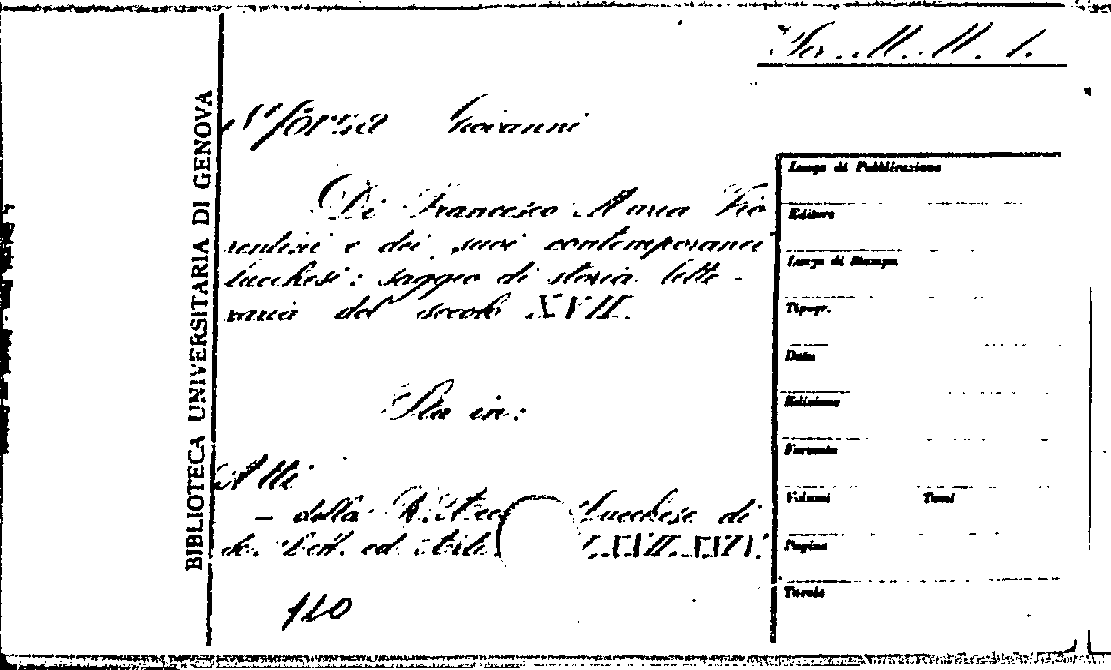 Ser. M. M. 1.
BIBLIOTECA UNIVERSITARIA DI GENOVA
Sforza Giovanni
Di Francesco Maria Fio
rentini e dei suoi contemporanei
lucchesi: saggio di storia lette-
raria del secolo XVII.
Sta in:
Atti
- della R. Acc Lucchese di
Sc. Lett. ed Arti
110
Luogo di Pubblicazione
Editore
Luogo di Stampa
Tipogr.
Data
Edizione
Formato
Volumi Tomi
Pagine
Tavole